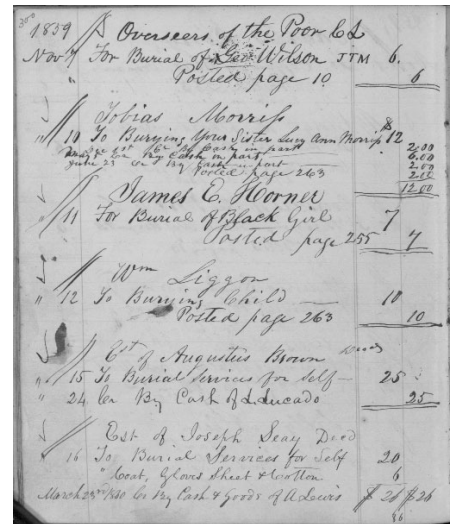 300
1859 Overseers of the Poor CL
Nov 7 For Burial of Geo Wilson JTM 6.
Posted page 10 6
Tobias Morriss
" 10 To Burying Your Sister Lucy Ann Morriss $12
Cash in part 2.00
Cr By Cash in part 6.00
June 23 Cr By Cash in part 2.00
Posted page 263 2.00
12.00
James E. Horner
" 11 For Burial of Black Girl 7
Posted page 255 7
Wm Liggon
" 12 To Burying Child — 10
Posted page 263 10
Est of Augustus Brown
" 15 To Burial Services for Self — 25
" 24 Cr By Cash of L. Lucado 25
Est of Joseph Seay Decd
" 16 To Burial Services for Self 20
" Coat, Gloves Sheet & Cotton 6
March 23rd 1860 Cr By Cash & Goods of A Lewis $26 $26